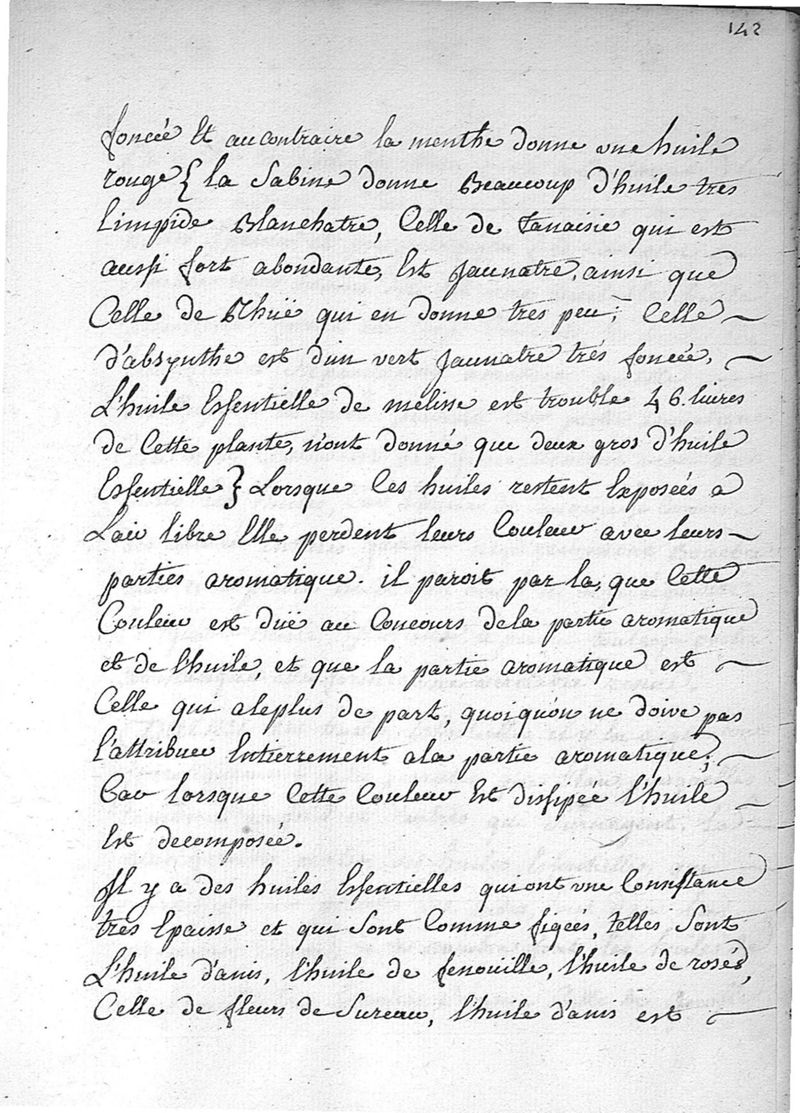 142
foncée Et au contraire la menthe donne une huile
rouge { la Sabine donne Beaucoup d'huile tres
Limpide Blanchatre, Celle de tanaisie qui est
aussi fort abondante, Est Jaunatre, ainsi que
Celle de Rhuë qui en donne tres peu; Celle
d'absynthe est d'un vert Jaunatre trés foncée,
L'huile Essentielle de mélisse est trouble 46. livres
de Cette plante, n'ont donné que deux gros d'huile
Essentielle } Lorsque Ces huiles restent Exposeés a
Lair libre Elle perdent leurs Couleur avec leurs
parties aromatique. il paroit par la, que Cette
Couleur est düe au Concours dela partie aromatique
et de l'huile, et que la partie aromatique est
Celle qui aleplus de part, quoiqu'on ne doive pas
l'attribuer Entierrement ala partie aromatique;
Car lorsque Cette Couleur Est dissipée l'huile
Est decomposée.
Il y a des huiles Essentielles qui ont une Consistance
trés Epaisse et qui Sont Comme figeés, telles Sont
L'huile d'anis, l'huile de fenouille, l'huile de roses,
Celle de fleurs de Sureau, l'huile d'anis est